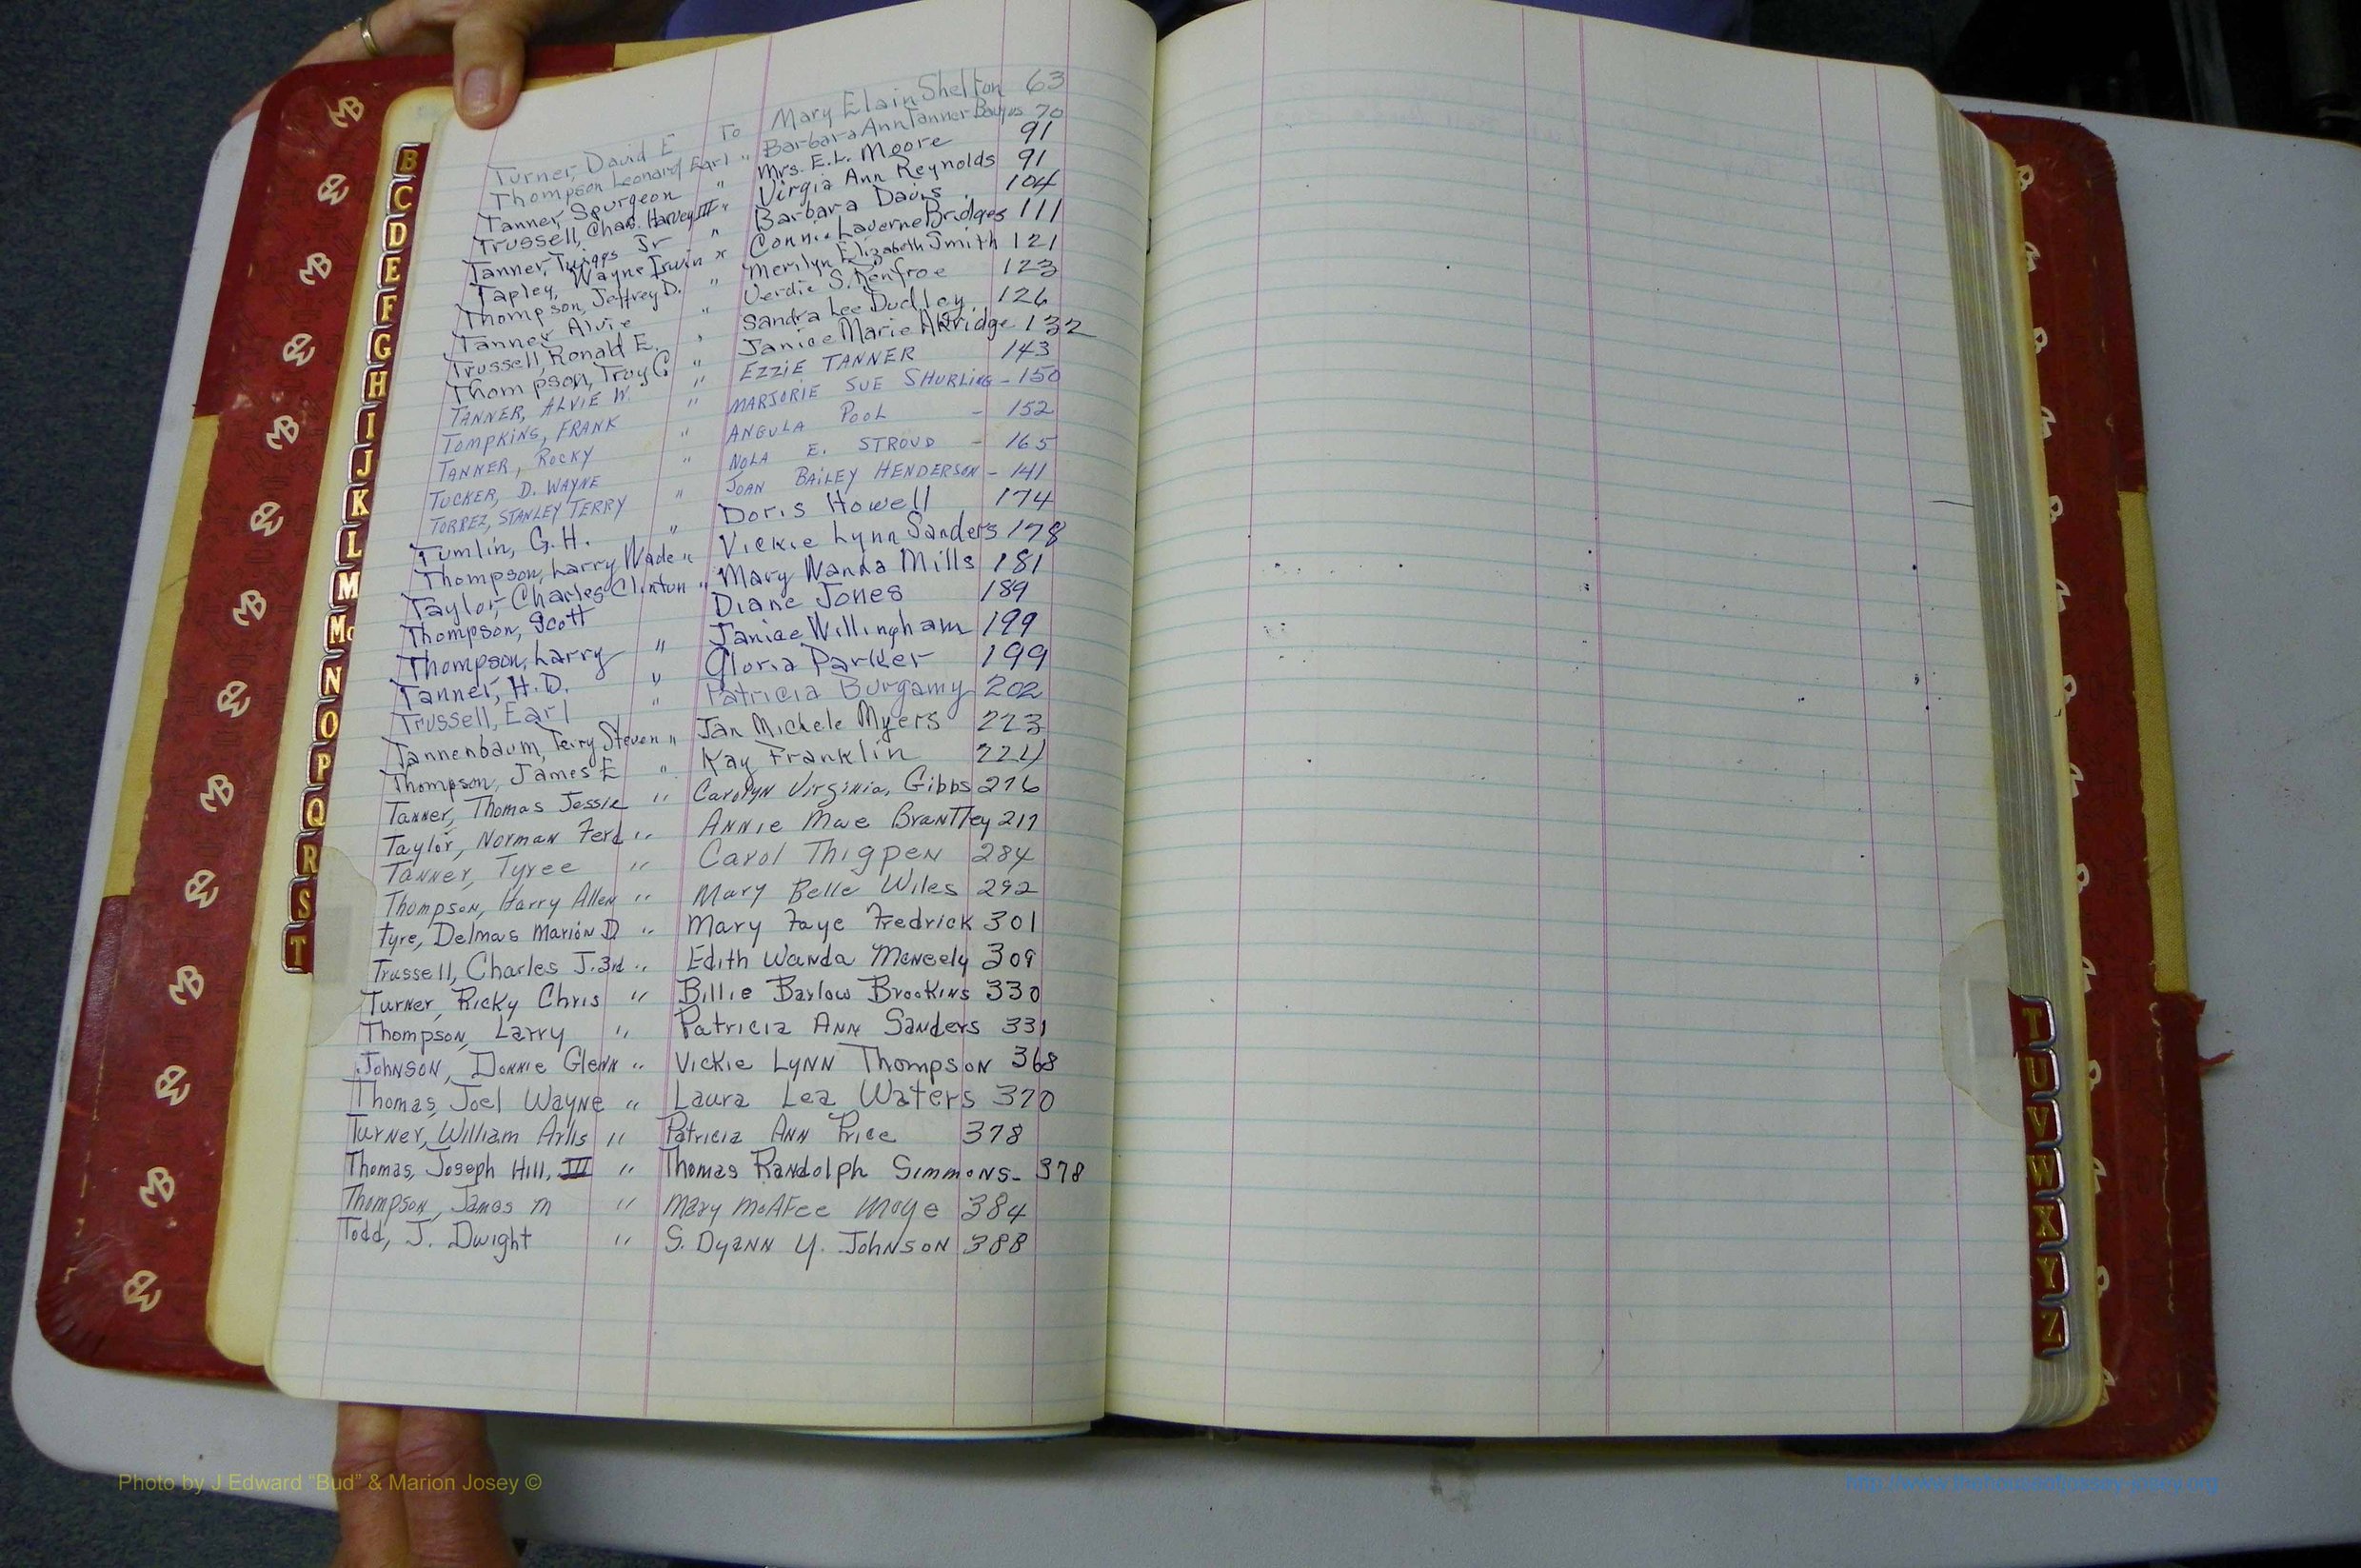 Turner, David E To Mary Elain Shelton 63
Thompson Leonard Earl " Barbara Ann Tanner 70
Tanner, Spurgeon " Mrs. E.L. Moore 91
Trussell, Chas. Harvey III " Virgia Ann Reynolds 91
Tanner, Twiggs Jr " Barbara Davis 104
Tapley, Wayne Irwin " Connie Laverne Bridges 111
Thompson, Jeffrey D. " Merilyn Elizabeth Smith 121
Tanner, Alvie " Verdie S. Renfroe 123
Trussell, Ronald E. " Sandra Lee Dudley 126
Thompson, Troy G " Janice Marie Akridge 132
TANNER, ALVIE W. " EZZIE TANNER 143
TOMPKINS, FRANK " MARJORIE SUE SHURLING - 150
TANNER, ROCKY " ANGULA POOL - 152
TUCKER, D. WAYNE " NOLA E. STROUD - 165
TORREZ, STANLEY TERRY " JOAN BAILEY HENDERSON - 141
Tumlin, G.H. " Doris Howell 174
Thompson, Larry Wade " Vickie Lynn Sanders 178
Taylor, Charles Clinton " Mary Wanda Mills 181
Thompson, Scott Diane Jones 189
Thompson, Larry " Janice Willingham 199
Tanner, H.D. " Gloria Parker 199
Trussell, Earl " Patricia Burgamy 202
Tannenbaum, Terry Steven " Jan Michele Myers 223
Thompson, James E " Kay Franklin 224
Tanner, Thomas Jessie " Carolyn Virginia, Gibbs 276
Taylor, Norman Ferd " Annie Mae Brantley 277
Tanner, Tyree " Carol Thigpen 284
Thompson, Harry Allen " Mary Belle Wiles 292
Tyre, Delmas Marion D. " Mary Faye Fredrick 301
Trussell, Charles J. 3rd " Edith Wanda McNeely 309
Turner, Ricky Chris " Billie Barlow Brookins 330
Thompson, Larry " Patricia Ann Sanders 331
Johnson, Donnie Glenn " Vickie Lynn Thompson 368
Thomas, Joel Wayne " Laura Lea Waters 370
Turner, William Arlis " Patricia Ann Price 378
Thomas, Joseph Hill, III " Thomas Randolph Simmons - 378
Thompson, James M " Mary McAfee Moye 384
Todd, J. Dwight " S. Dyann Y. Johnson 388
B
C
D
E
F
G
H
I
J
K
L
M
Mc
N
O
P
Q
R
S
T
T
U
V
W
X
Y
Z
Photo by J Edward "Bud" & Marion Josey ©